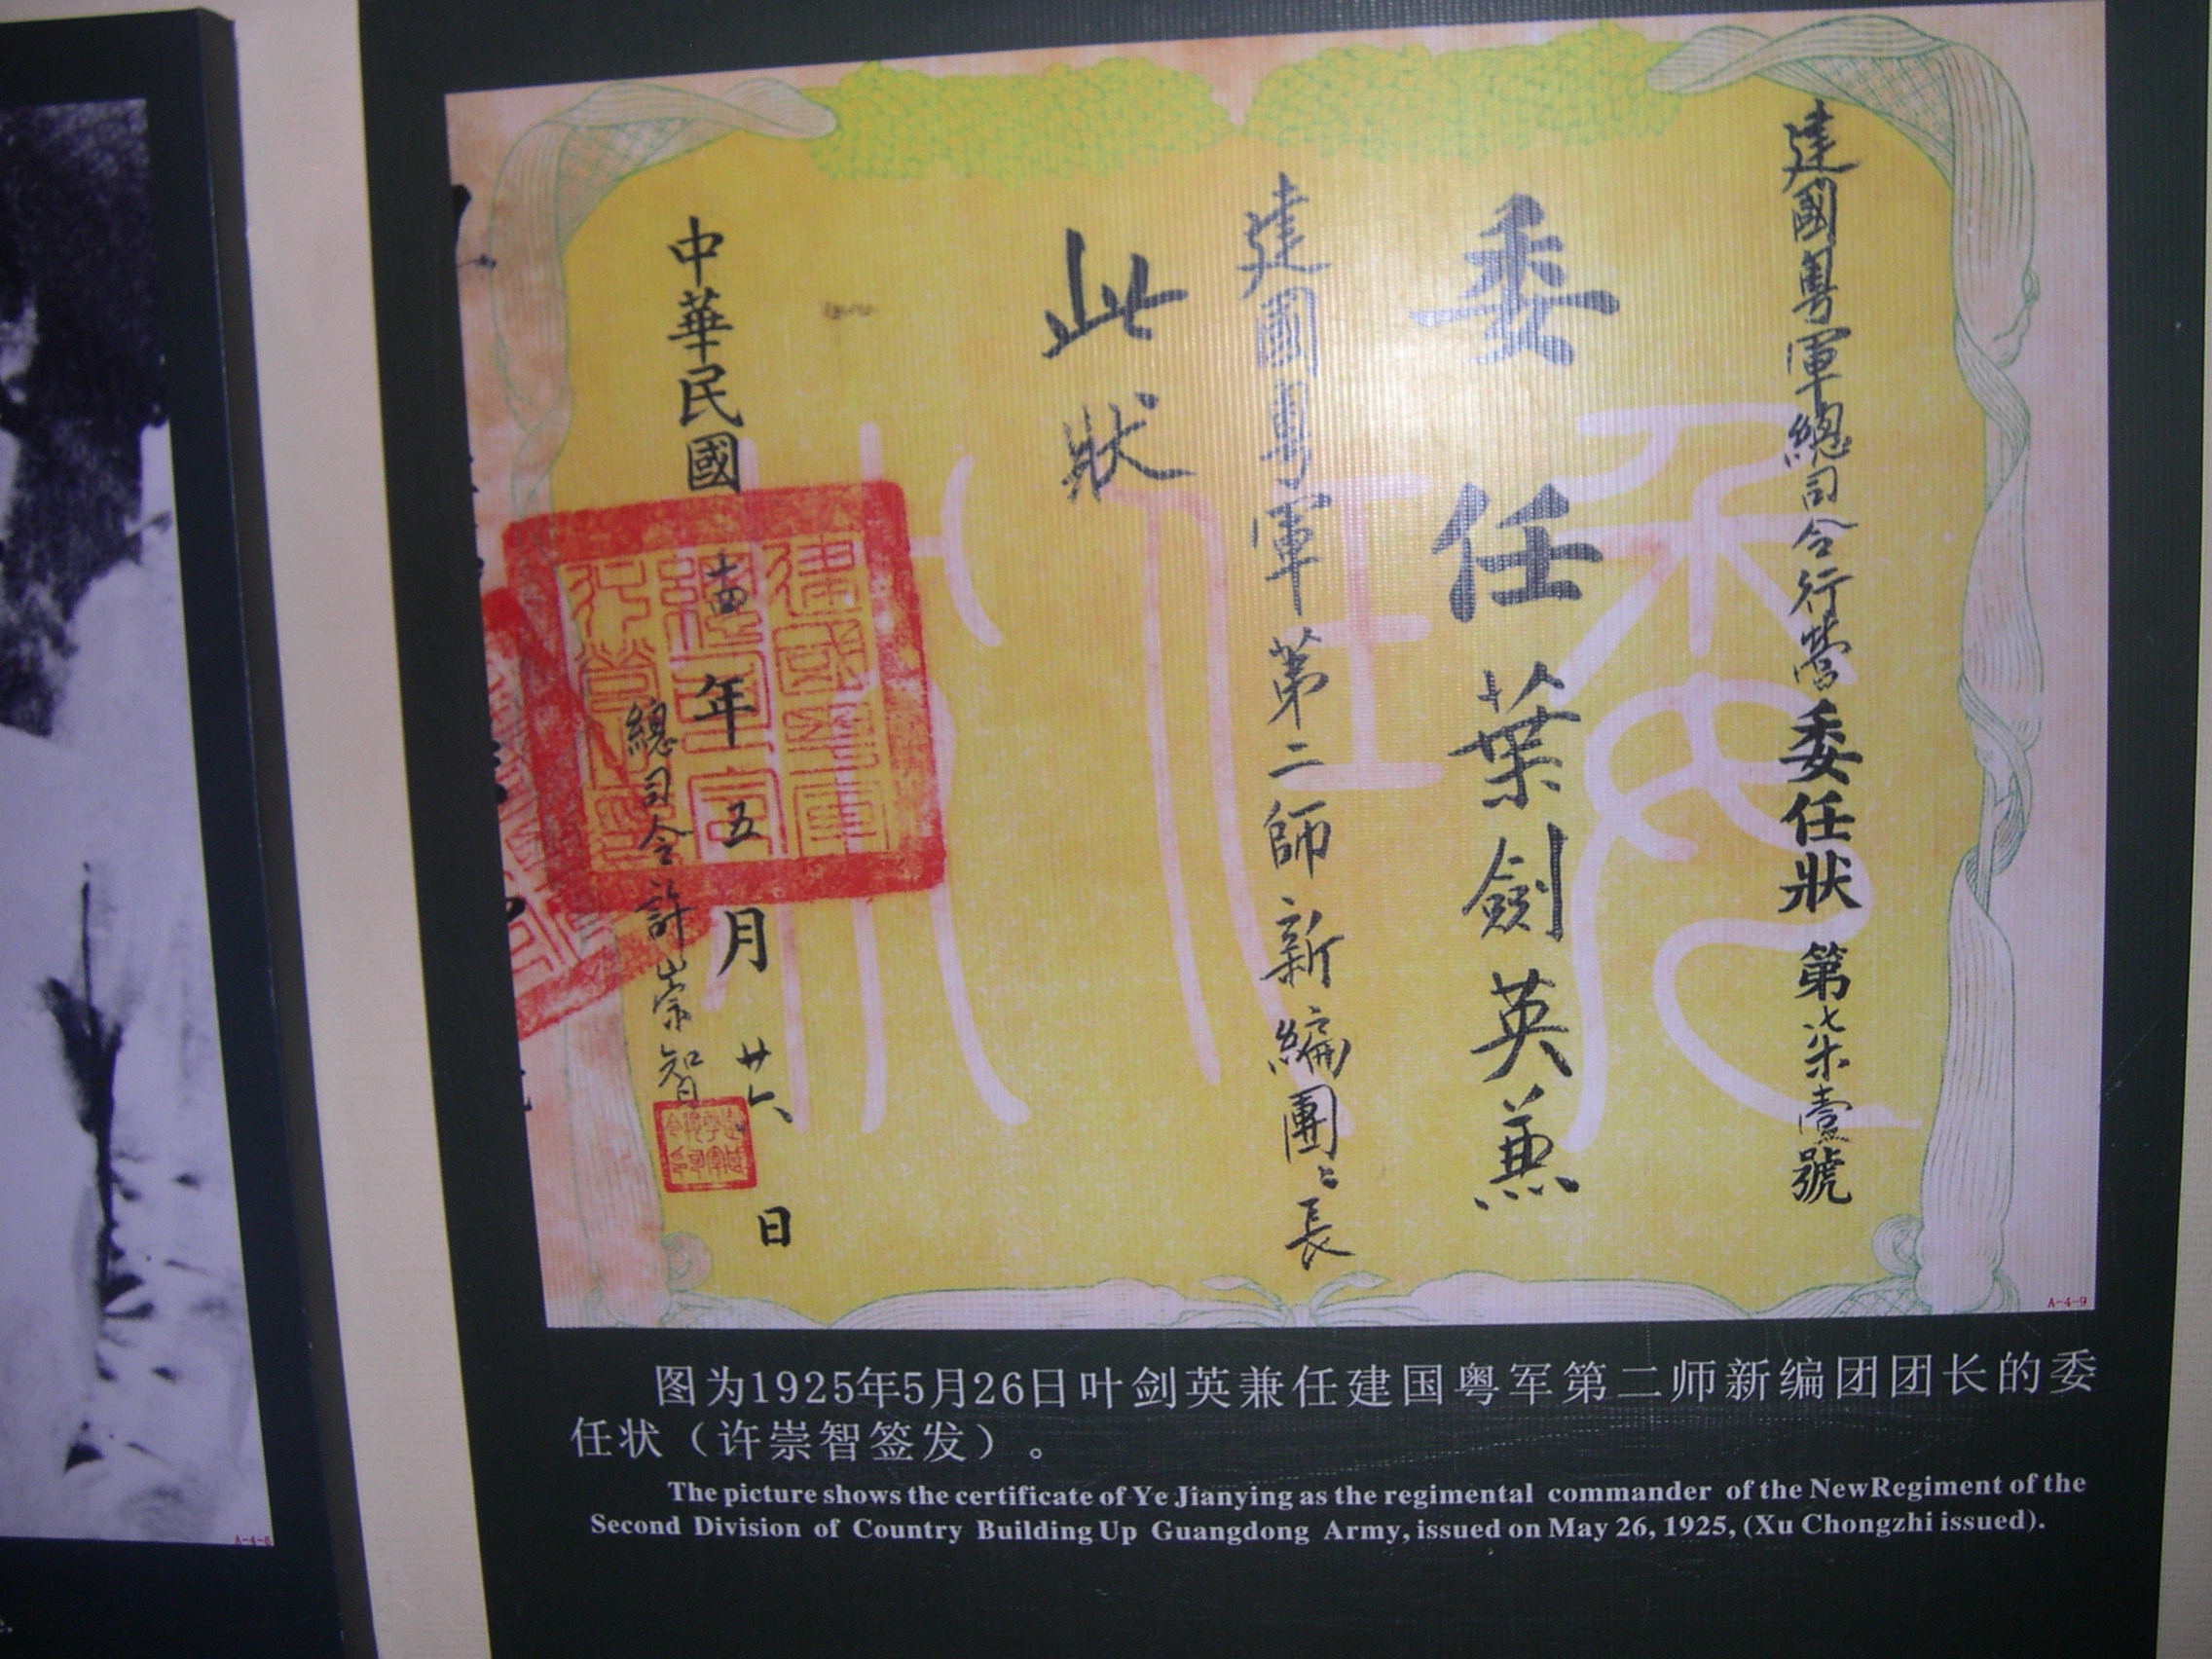 建國粵軍總司令行營委任狀 第柒壹號
委任葉劍英兼
建國粵軍第二師新編團〻長
此狀
中華民國 年五月廿六日
總司令許崇智
A-4-9
图为1925年5月26日叶剑英兼任建国粤军第二师新编团团长的委
任状（许崇智签发）。
The picture shows the certificate of Ye Jianying as the regimental commander of the NewRegiment of the
Second Division of Country Building Up Guangdong Army, issued on May 26, 1925, (Xu Chongzhi issued).
A-4-8